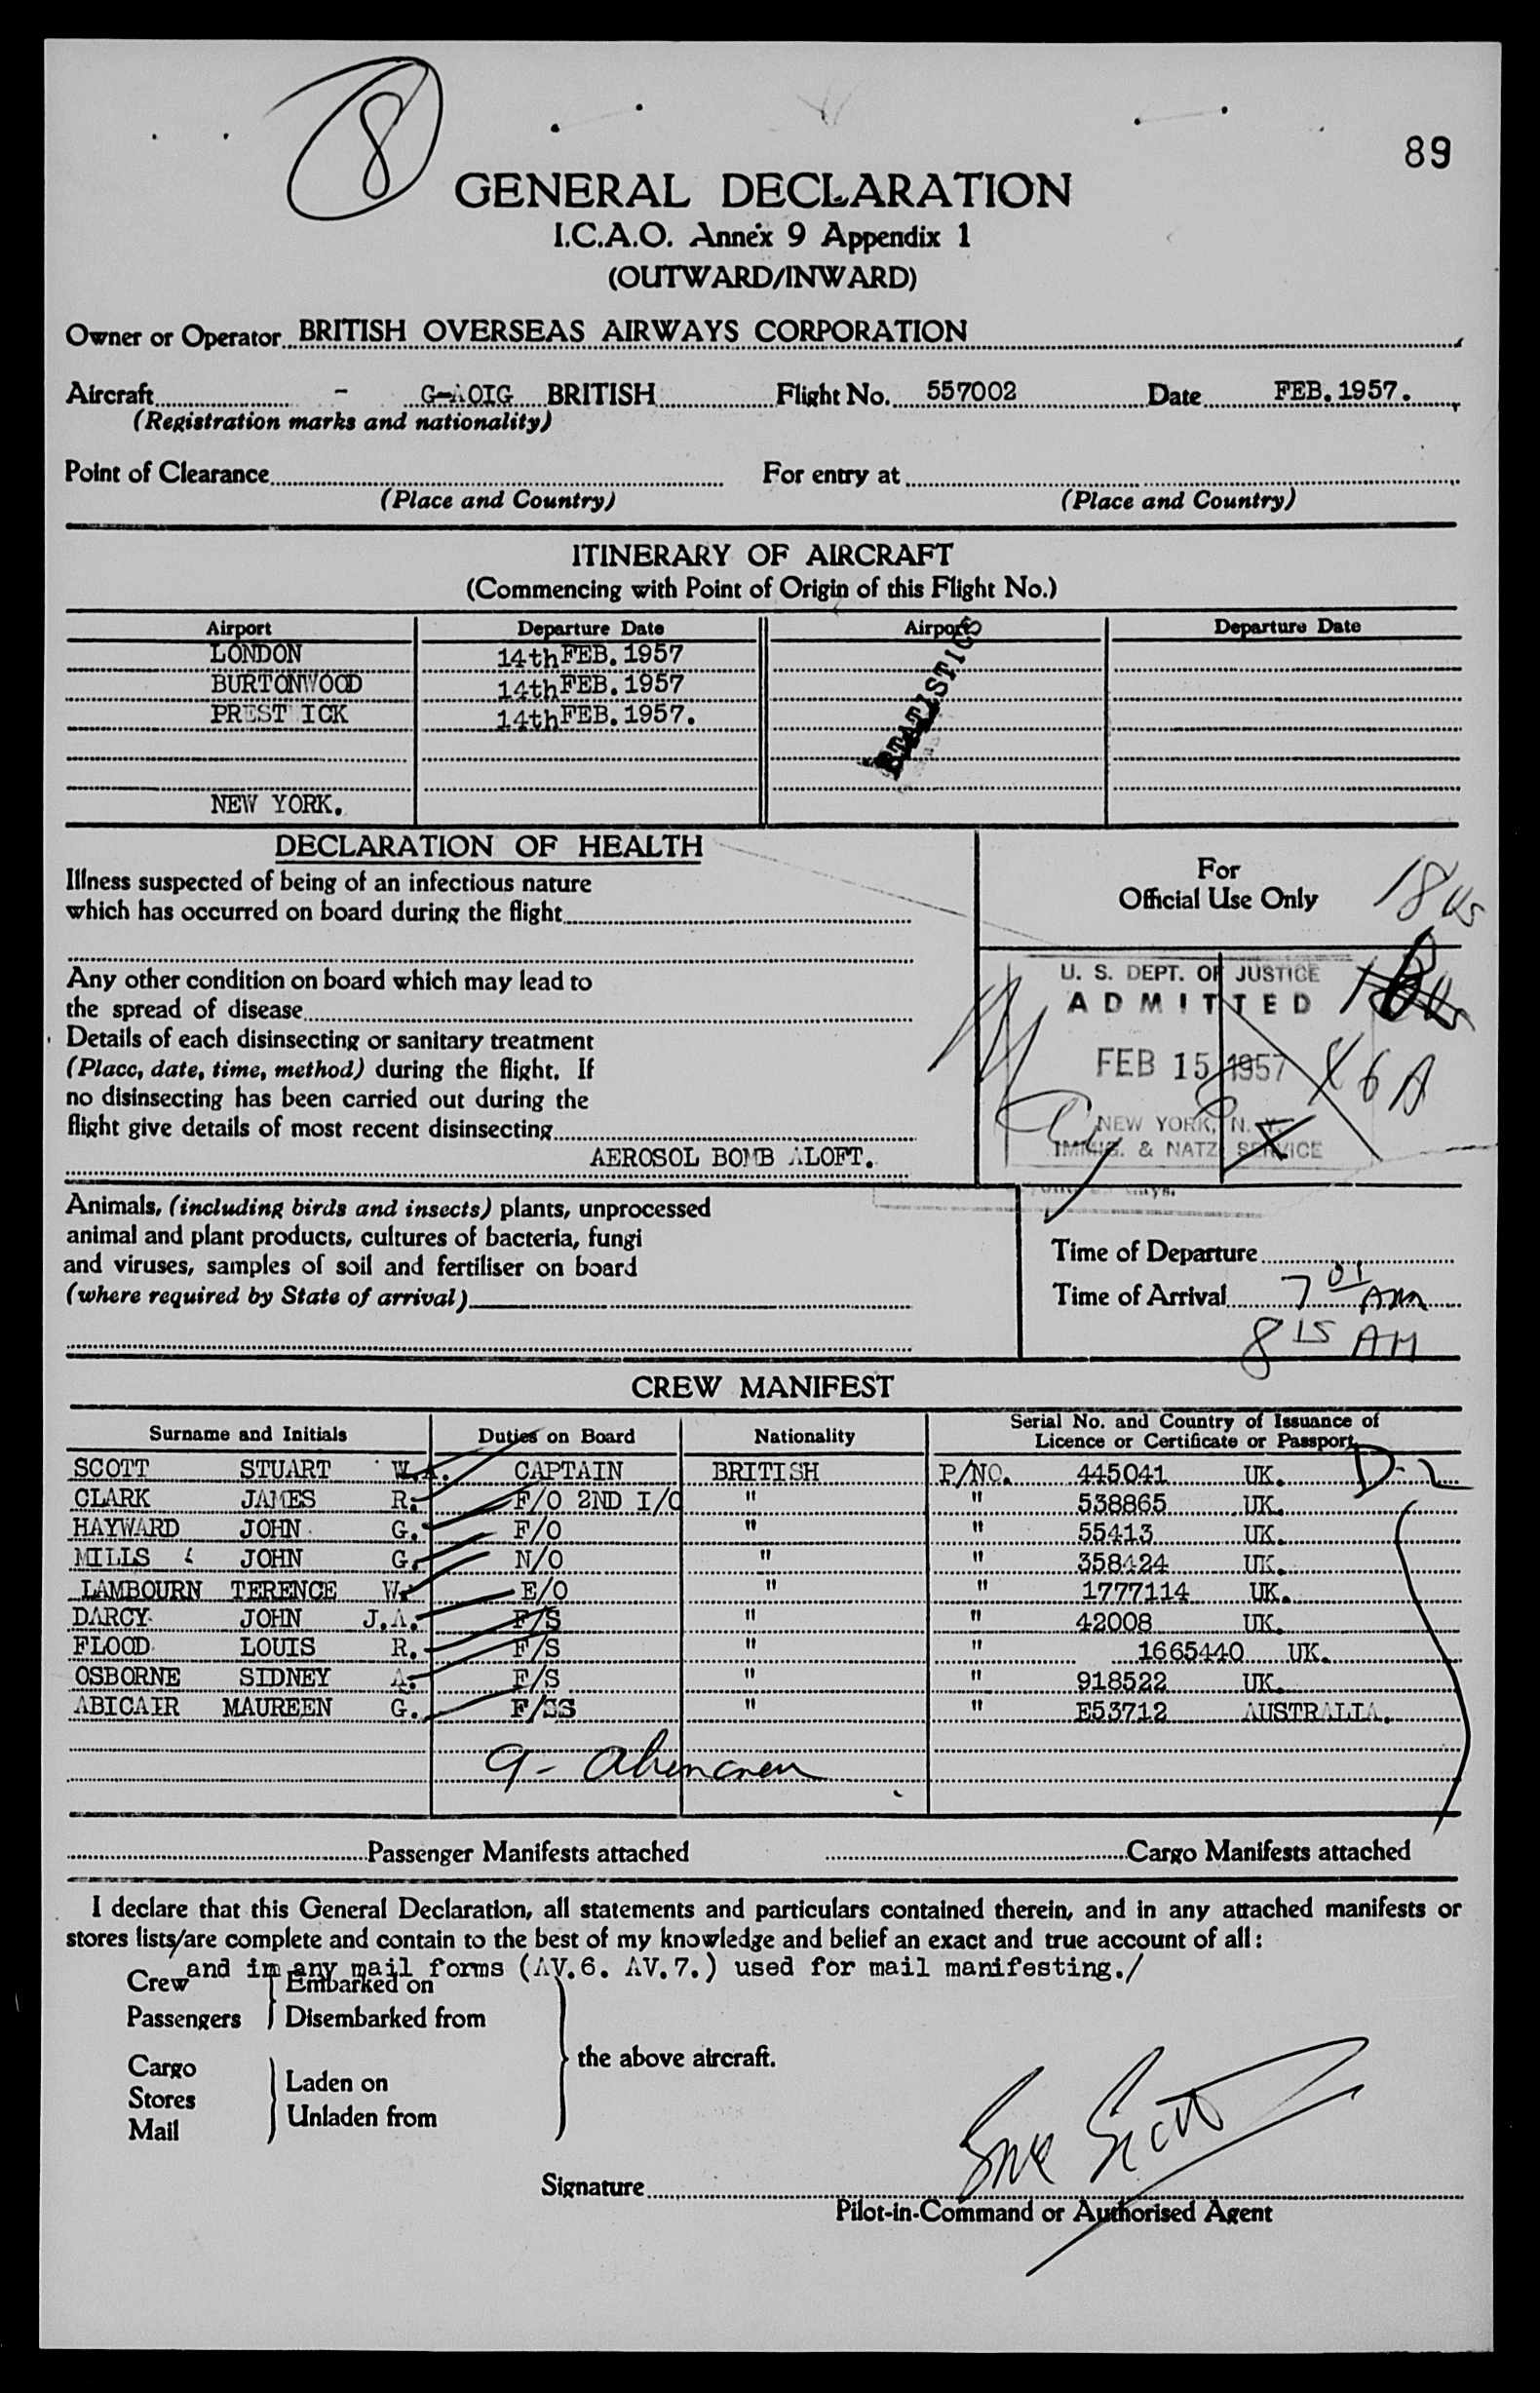 8
89
GENERAL DECLARATION
I.C.A.O. Annex 9 Appendix 1
(OUTWARD/INWARD)
Owner or Operator BRITISH OVERSEAS AIRWAYS CORPORATION
Aircraft - G-AOIG BRITISH Flight No. 557002 Date FEB. 1957.
(Registration marks and nationality)
Point of Clearance For entry at
(Place and Country) (Place and Country)
ITINERARY OF AIRCRAFT
(Commencing with Point of Origin of this Flight No.)
Airport Departure Date Airport Departure Date
LONDON 14th FEB. 1957
BURTONWOOD 14th FEB. 1957
PREST ICK 14th FEB. 1957.
STATISTICS
NEW YORK.
DECLARATION OF HEALTH
Illness suspected of being of an infectious nature
which has occurred on board during the flight
Any other condition on board which may lead to
the spread of disease
Details of each disinsecting or sanitary treatment
(Place, date, time, method) during the flight. If
no disinsecting has been carried out during the
flight give details of most recent disinsecting
AEROSOL BOMB ALOFT.
For
Official Use Only
18 US
U. S. DEPT. OF JUSTICE
ADMITTED
FEB 15 1957
6 A
NEW YORK, N. Y.
IMMIG. & NATZ. SERVICE
Animals, (including birds and insects) plants, unprocessed
animal and plant products, cultures of bacteria, fungi
and viruses, samples of soil and fertiliser on board
(where required by State of arrival)
Time of Departure
Time of Arrival 7 01 AM
8 15 AM
CREW MANIFEST
Surname and Initials Duties on Board Nationality Serial No. and Country of Issuance of Licence or Certificate or Passport
SCOTT STUART W.A. CAPTAIN BRITISH P/NO. 445041 UK. D-2
CLARK JAMES R. F/O 2ND I/C " " 538865 UK.
HAYWARD JOHN G. F/O " " 55413 UK.
MILLS JOHN G. N/O " " 358424 UK.
LAMBOURN TERENCE W. E/O " " 1777114 UK.
DARCY JOHN J.A. F/S " " 42008 UK.
FLOOD LOUIS R. F/S " " 1665440 UK.
OSBORNE SIDNEY A. F/S " " 918522 UK.
ABICAIR MAUREEN G. F/SS " " E53712 AUSTRALIA.
9 -
Passenger Manifests attached Cargo Manifests attached
I declare that this General Declaration, all statements and particulars contained therein, and in any attached manifests or
stores lists/are complete and contain to the best of my knowledge and belief an exact and true account of all:
and in any mail forms (AV.6. AV.7.) used for mail manifesting./
Crew Embarked on
Passengers Disembarked from
the above aircraft.
Cargo
Stores Laden on
Mail Unladen from
Signature
Pilot-in-Command or Authorised Agent